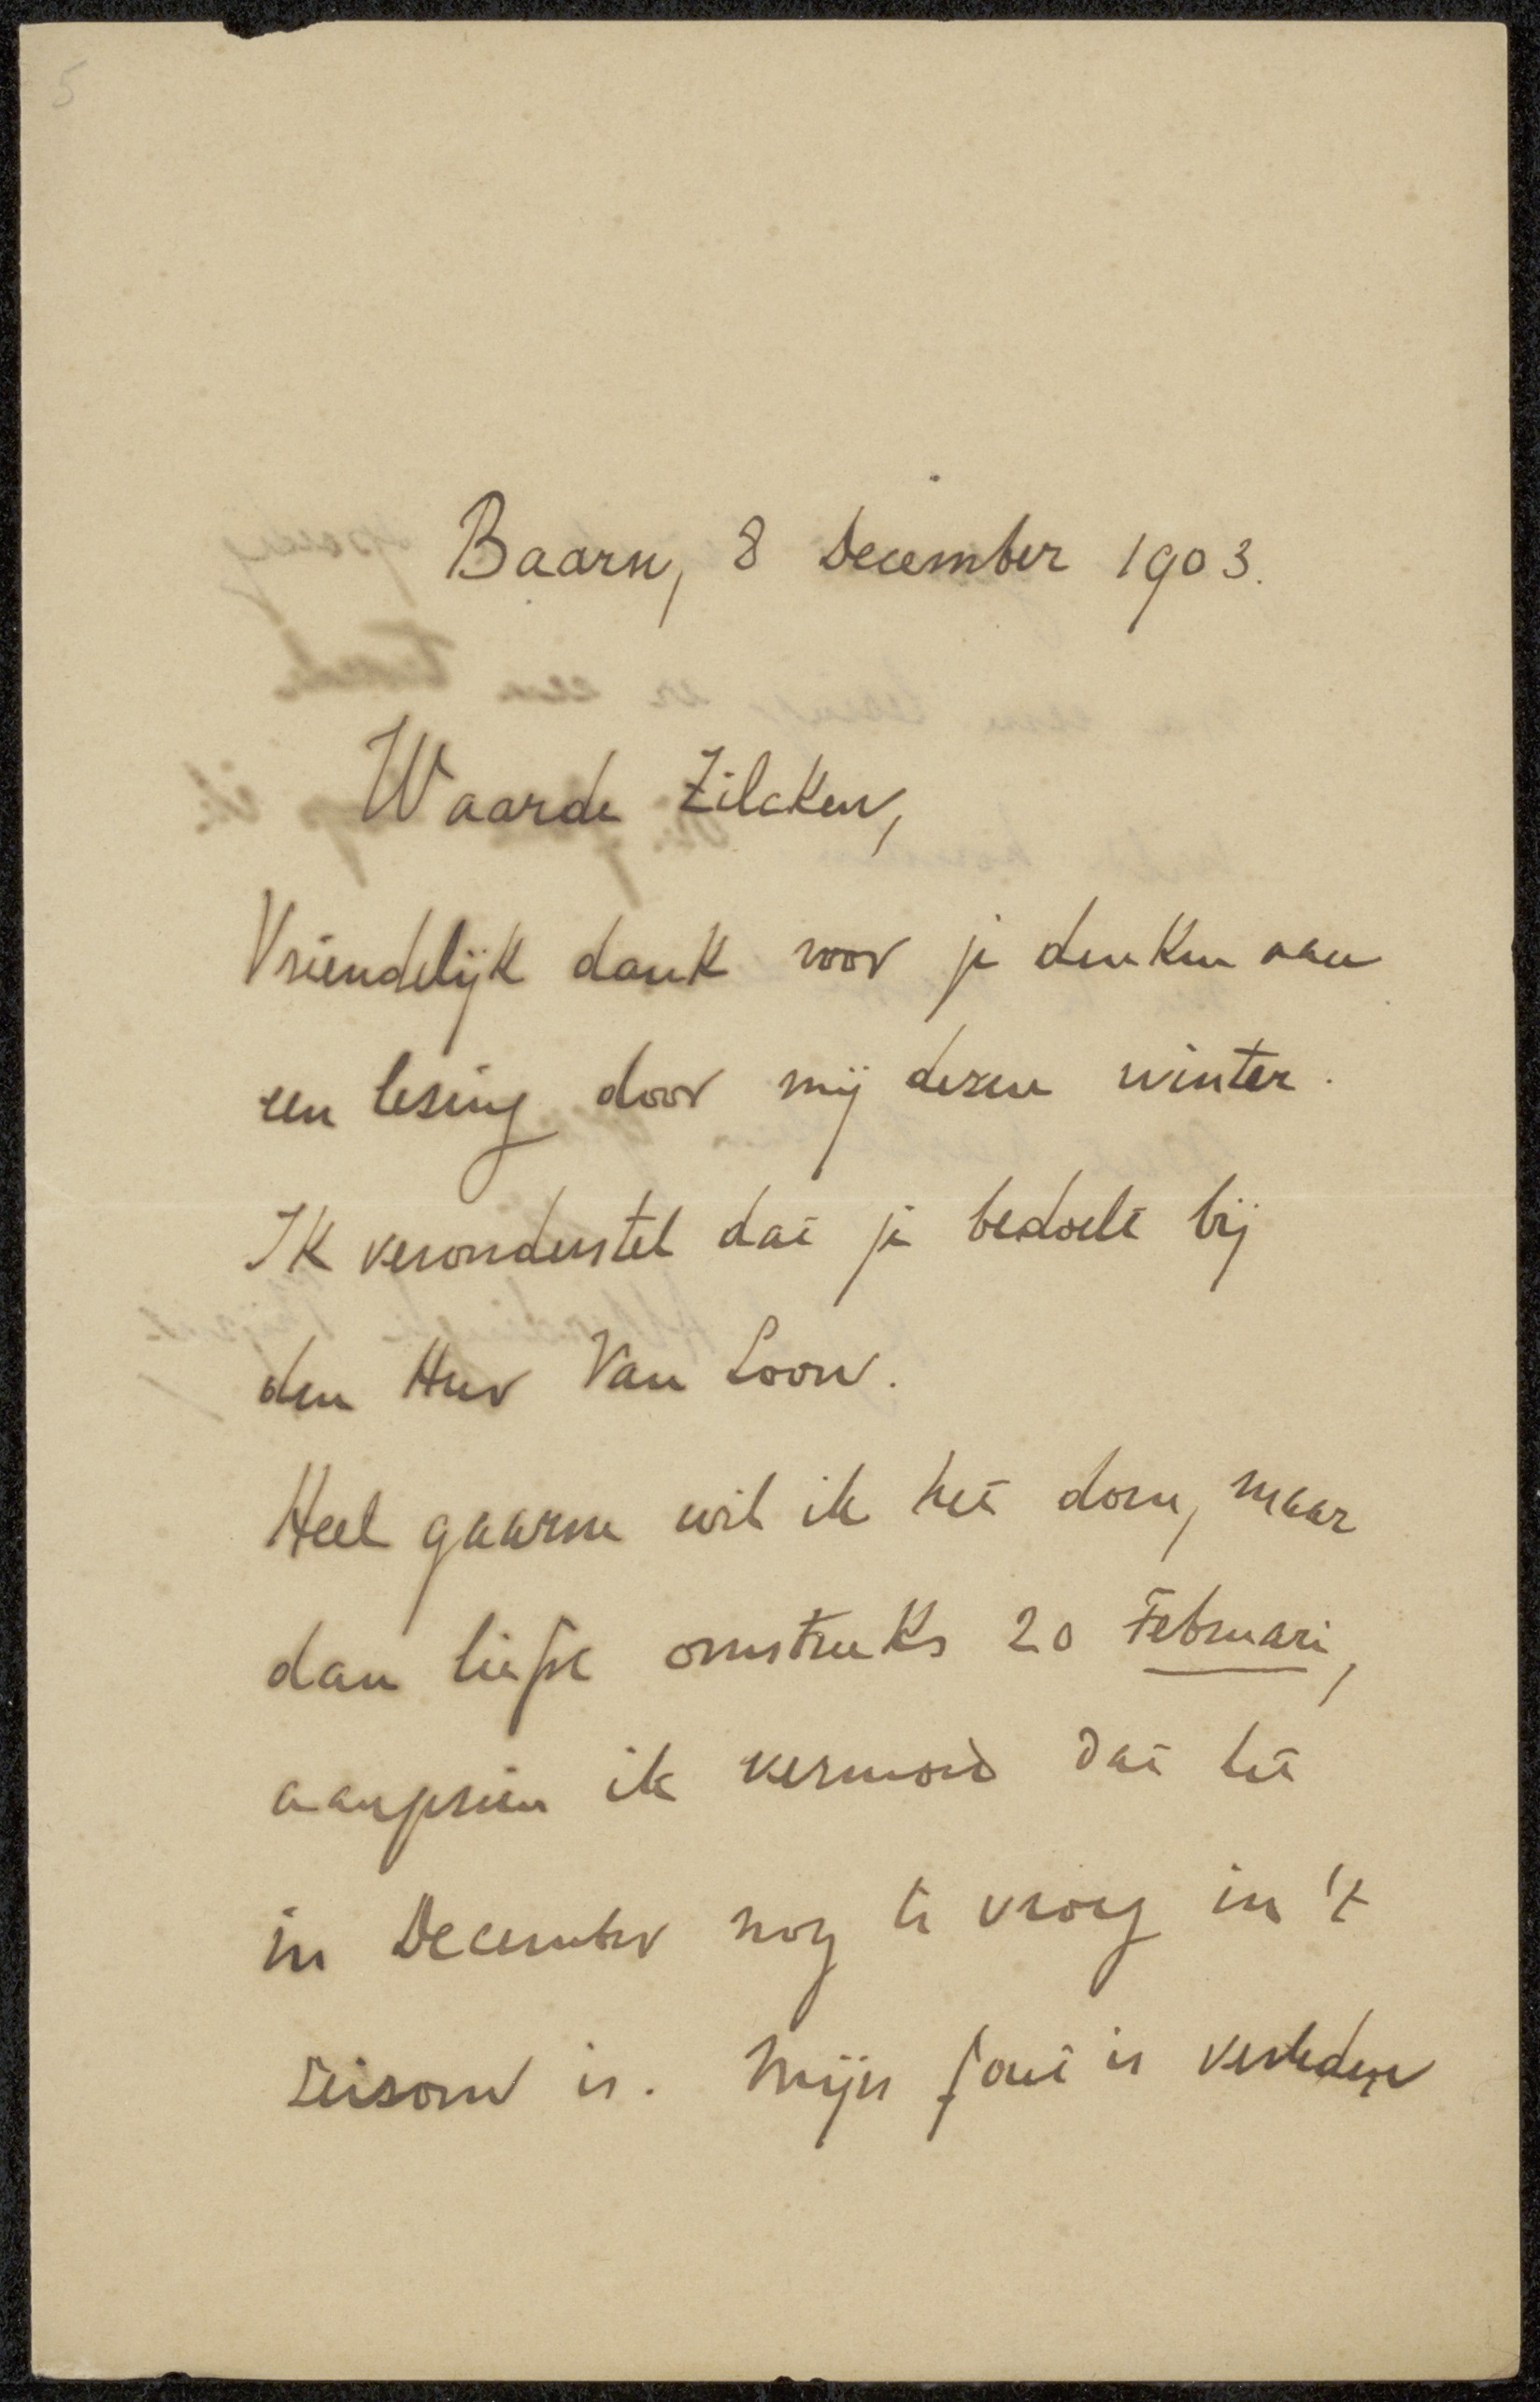 5
Baarn, 8 December 1903.
Waarde Zilcken,
Vriendelijk dank voor je denken aan
een lesing door mij dezen winter.
Ik veronderstel dat je bedoelt bij
den Heer Van Loon.
Heel gaarne wil ik het doen, maar
dan liefst omstreeks 20 Februari,
aangezien ik vermoed dat het
in December nog te vroeg in 't
seizoen is. Mijn fout is verleden